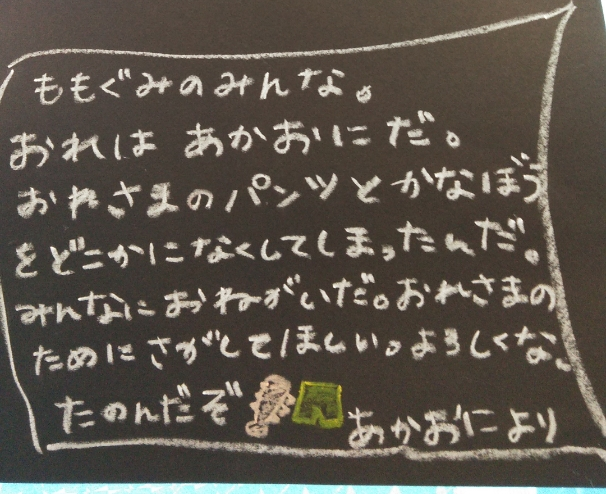 ももぐみのみんな。
おれは あかおにだ。
おれさまのパンツとかなぼう
をどこかになくしてしまったんだ。
みんなにおねがいだ。おれさまの
ためにさがしてほしい。よろしくな。
たのんだぞ あかおにより